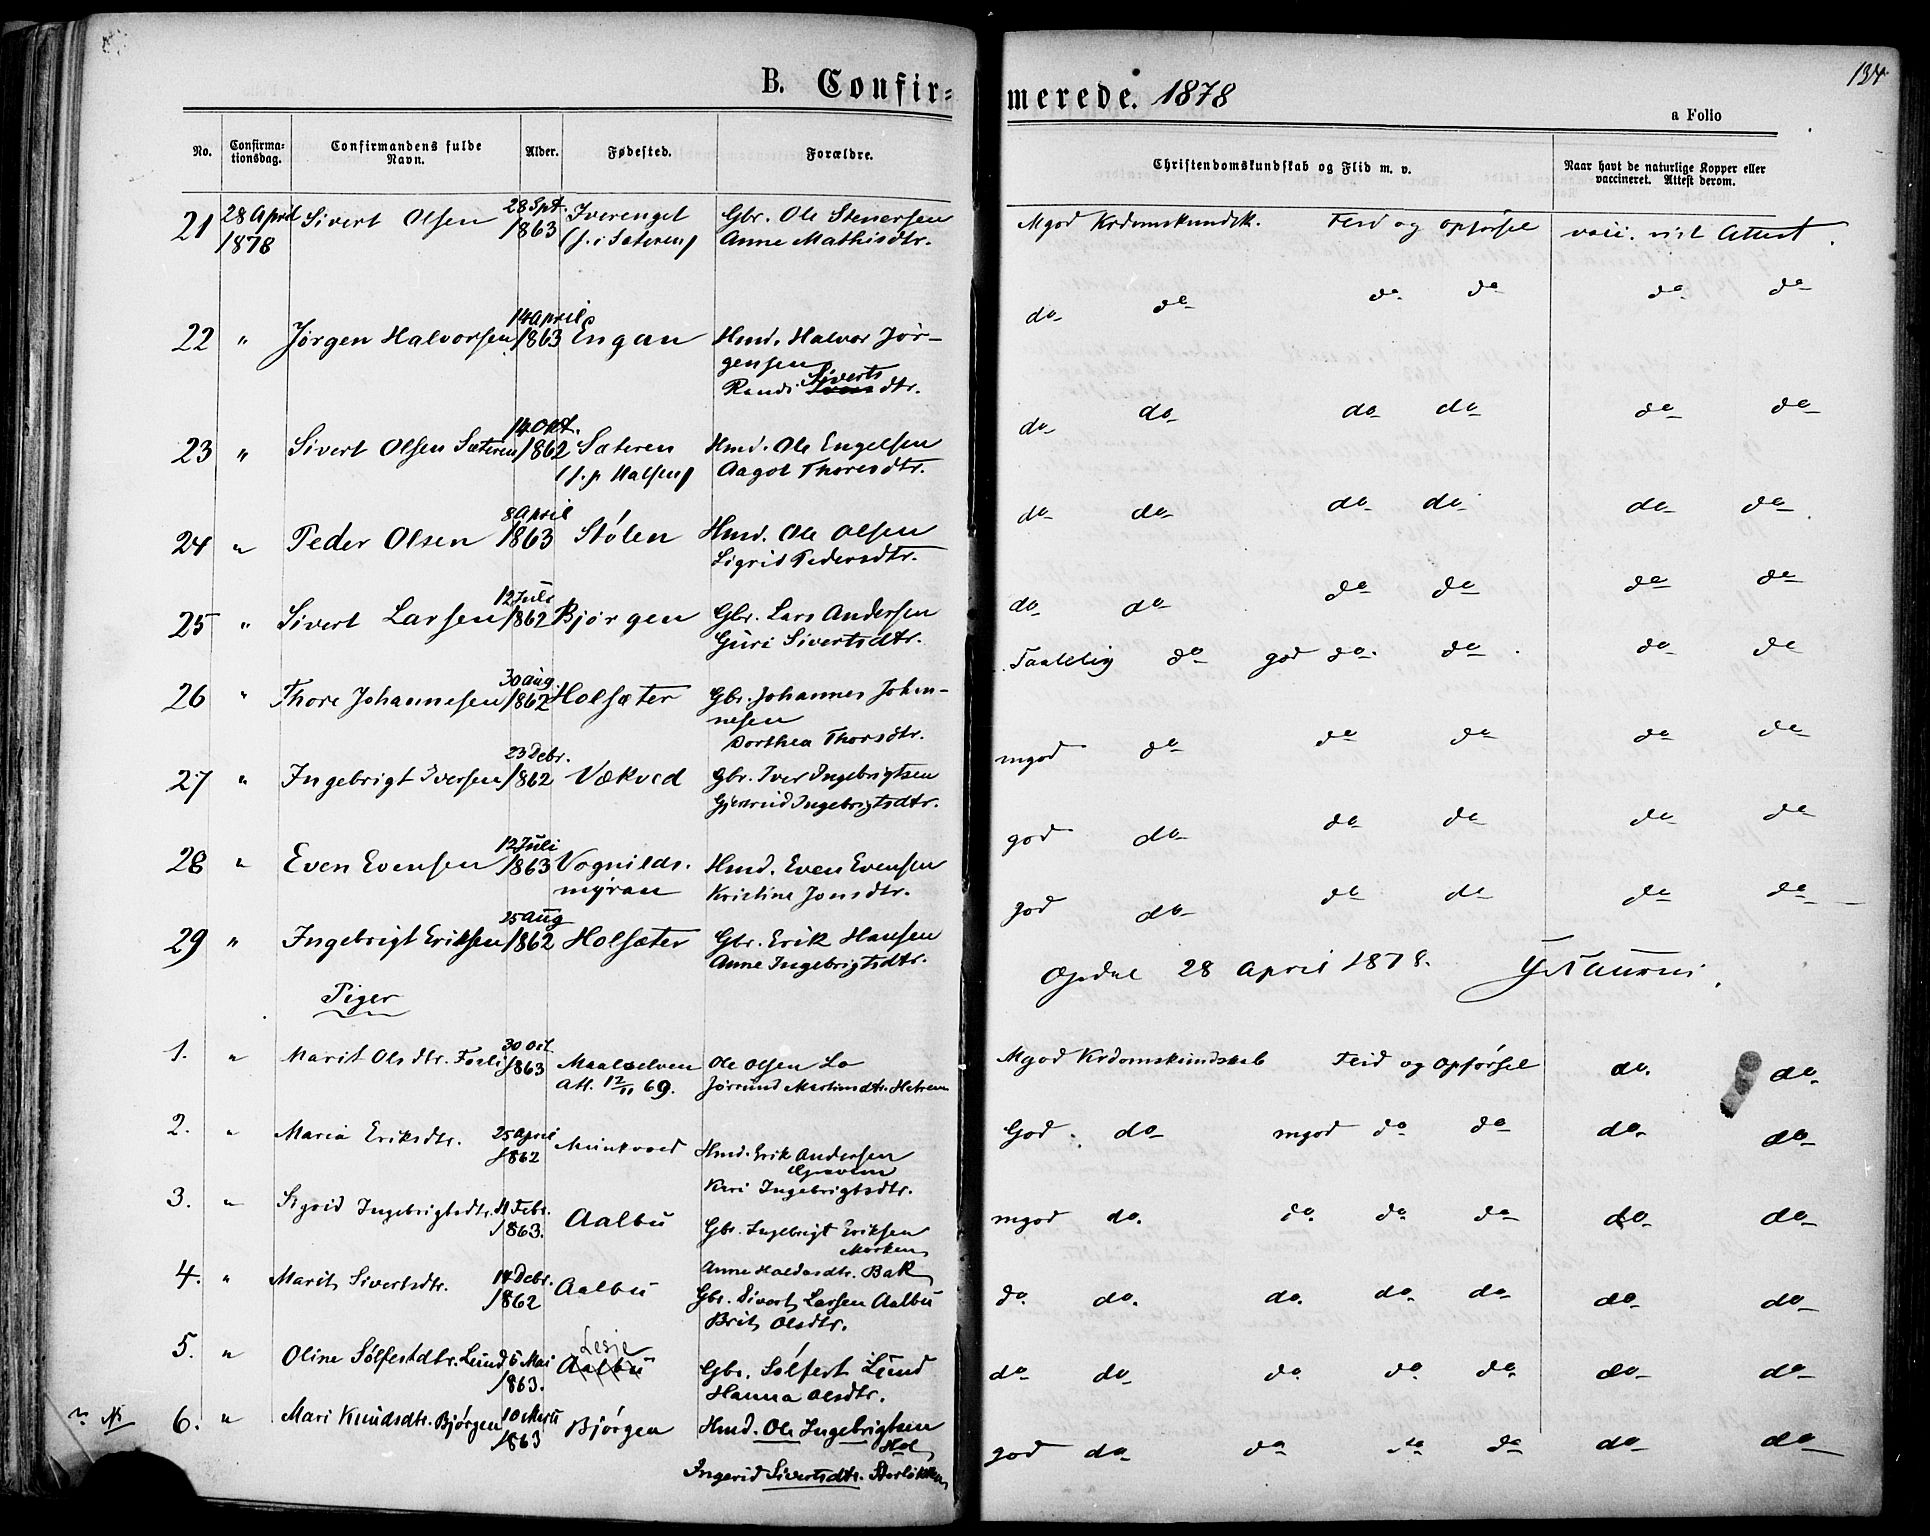 134
B. Confir= merede. 1878
a Folio
No. Confirma-tionsdag. Confirmandens fulde Navn. Alder. Fødested. Forældre. Christendomskundskab og Flid m. v. Naar havt de naturlige Kopper eller vaccineret. Attest derom.
21 28 April 1878 Sivert Olsen 28 Spt. 1863 Iverenget (f. i Sæteren) Gbr. Ole Stenersen
Anne Mathisdtr. Mgod Krdomskundsk. Flid og opførsel vacc. vist Attest.
22 " Jørgen Halvorsen 14 April 1863 Engan Hmd. Halvor Jør-
gensen
Randi Siverts dtr. do do do do do do
23 " Sivert Olsen Sæteren 14 Okt. 1862 Sæteren (f. p Halsen) Hmd. Ole Engelsen
Aagot Thoresdtr. do do do do do do
24 " Peder Olsen 8 April 1863 Stølen Hmd. Ole Olsen
Sigrid Pedersdtr. do do do do do do
25 " Sivert Larsen 12 Juli 1862 Bjørgen Gbr. Lars Andersen
Guri Sivertsdtr. do do do do do do
26 " Thore Johannesen 30 Aug. 1862 Holsæter Gbr. Johannes Johan-
nesen
Dorthea Thorsdtr. Taalelig do god do. do. do do
27 " Ingebrigt Iversen 23 Debr. 1862 Vækved Gbr. Iver Ingebrigtsen
Gjertrud Ingebrigtsdtr. mgod do do do do do
28 " Even Evensen 12 Juli 1863 Vognilds.
myran Hmd. Even Evensen
Kristine Jonsdtr. god do do do do do
29 " Ingebrigt Eriksen 25 Aug 1862 Holsæter Gbr. Erik Hansen
Anne Ingebrigtsdtr. god do do do do do
Opdal 28 April 1878.
Piger
1. " Marit Olsdtr. Fosli 30 Oct 1863 Maalselven
Att. 12/11 69. Ole Olsen Lo
Jørrund Mortensdtr. Mgod Krdomskundskab Flid og Opførsel do. do.
2. " Maria Eriksdtr. 25 April 1862 Munkvoed Hmd. Erik Andersen
Gravem
Kari Ingebrigtsdtr. God. do mgod do do do. do
3. " Sigrid Ingebrigtsdtr. 11 Febr. 1863. Aalbu Gbr. Ingebrigt Eriksen
Morken
Anne Haldosdtr. Bak mgod do. do. do do do do
4. " Marit Sivertsdtr. 14 Debr. 1862 Aalbu Gbr. Sivert Larsen Aalbu
Brit Olsdtr. do. do. do. do. do do do
5. " Oline Sølfestdtr. Lund 6 Mai 1863. Lesje
Aalbu Gbr. Sølfest Lund
Hanna Olsdtr. do do do do do do do
6. " Mari Knudsdtr. Bjørgen 10 Marts 1863 Bjørgen Hmd. Ole Ingebrigtsen
Hol
Ingerid Sivertsdtr. Storløkken god do do do do do do